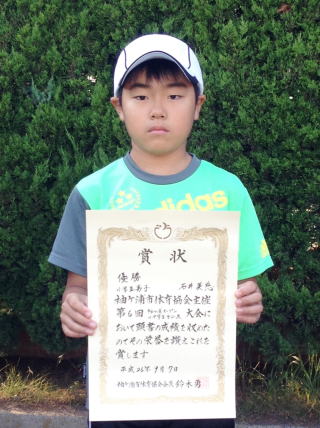 adidas
賞状
優勝
小学生男子 石井
袖ケ浦市体育協会主催
第6回 大会に
おいて頭書の成績を収めた
のでその栄誉を讃えこれを
賞します
平成26年9月7日
袖ケ浦市体育協会会長 鈴木勇